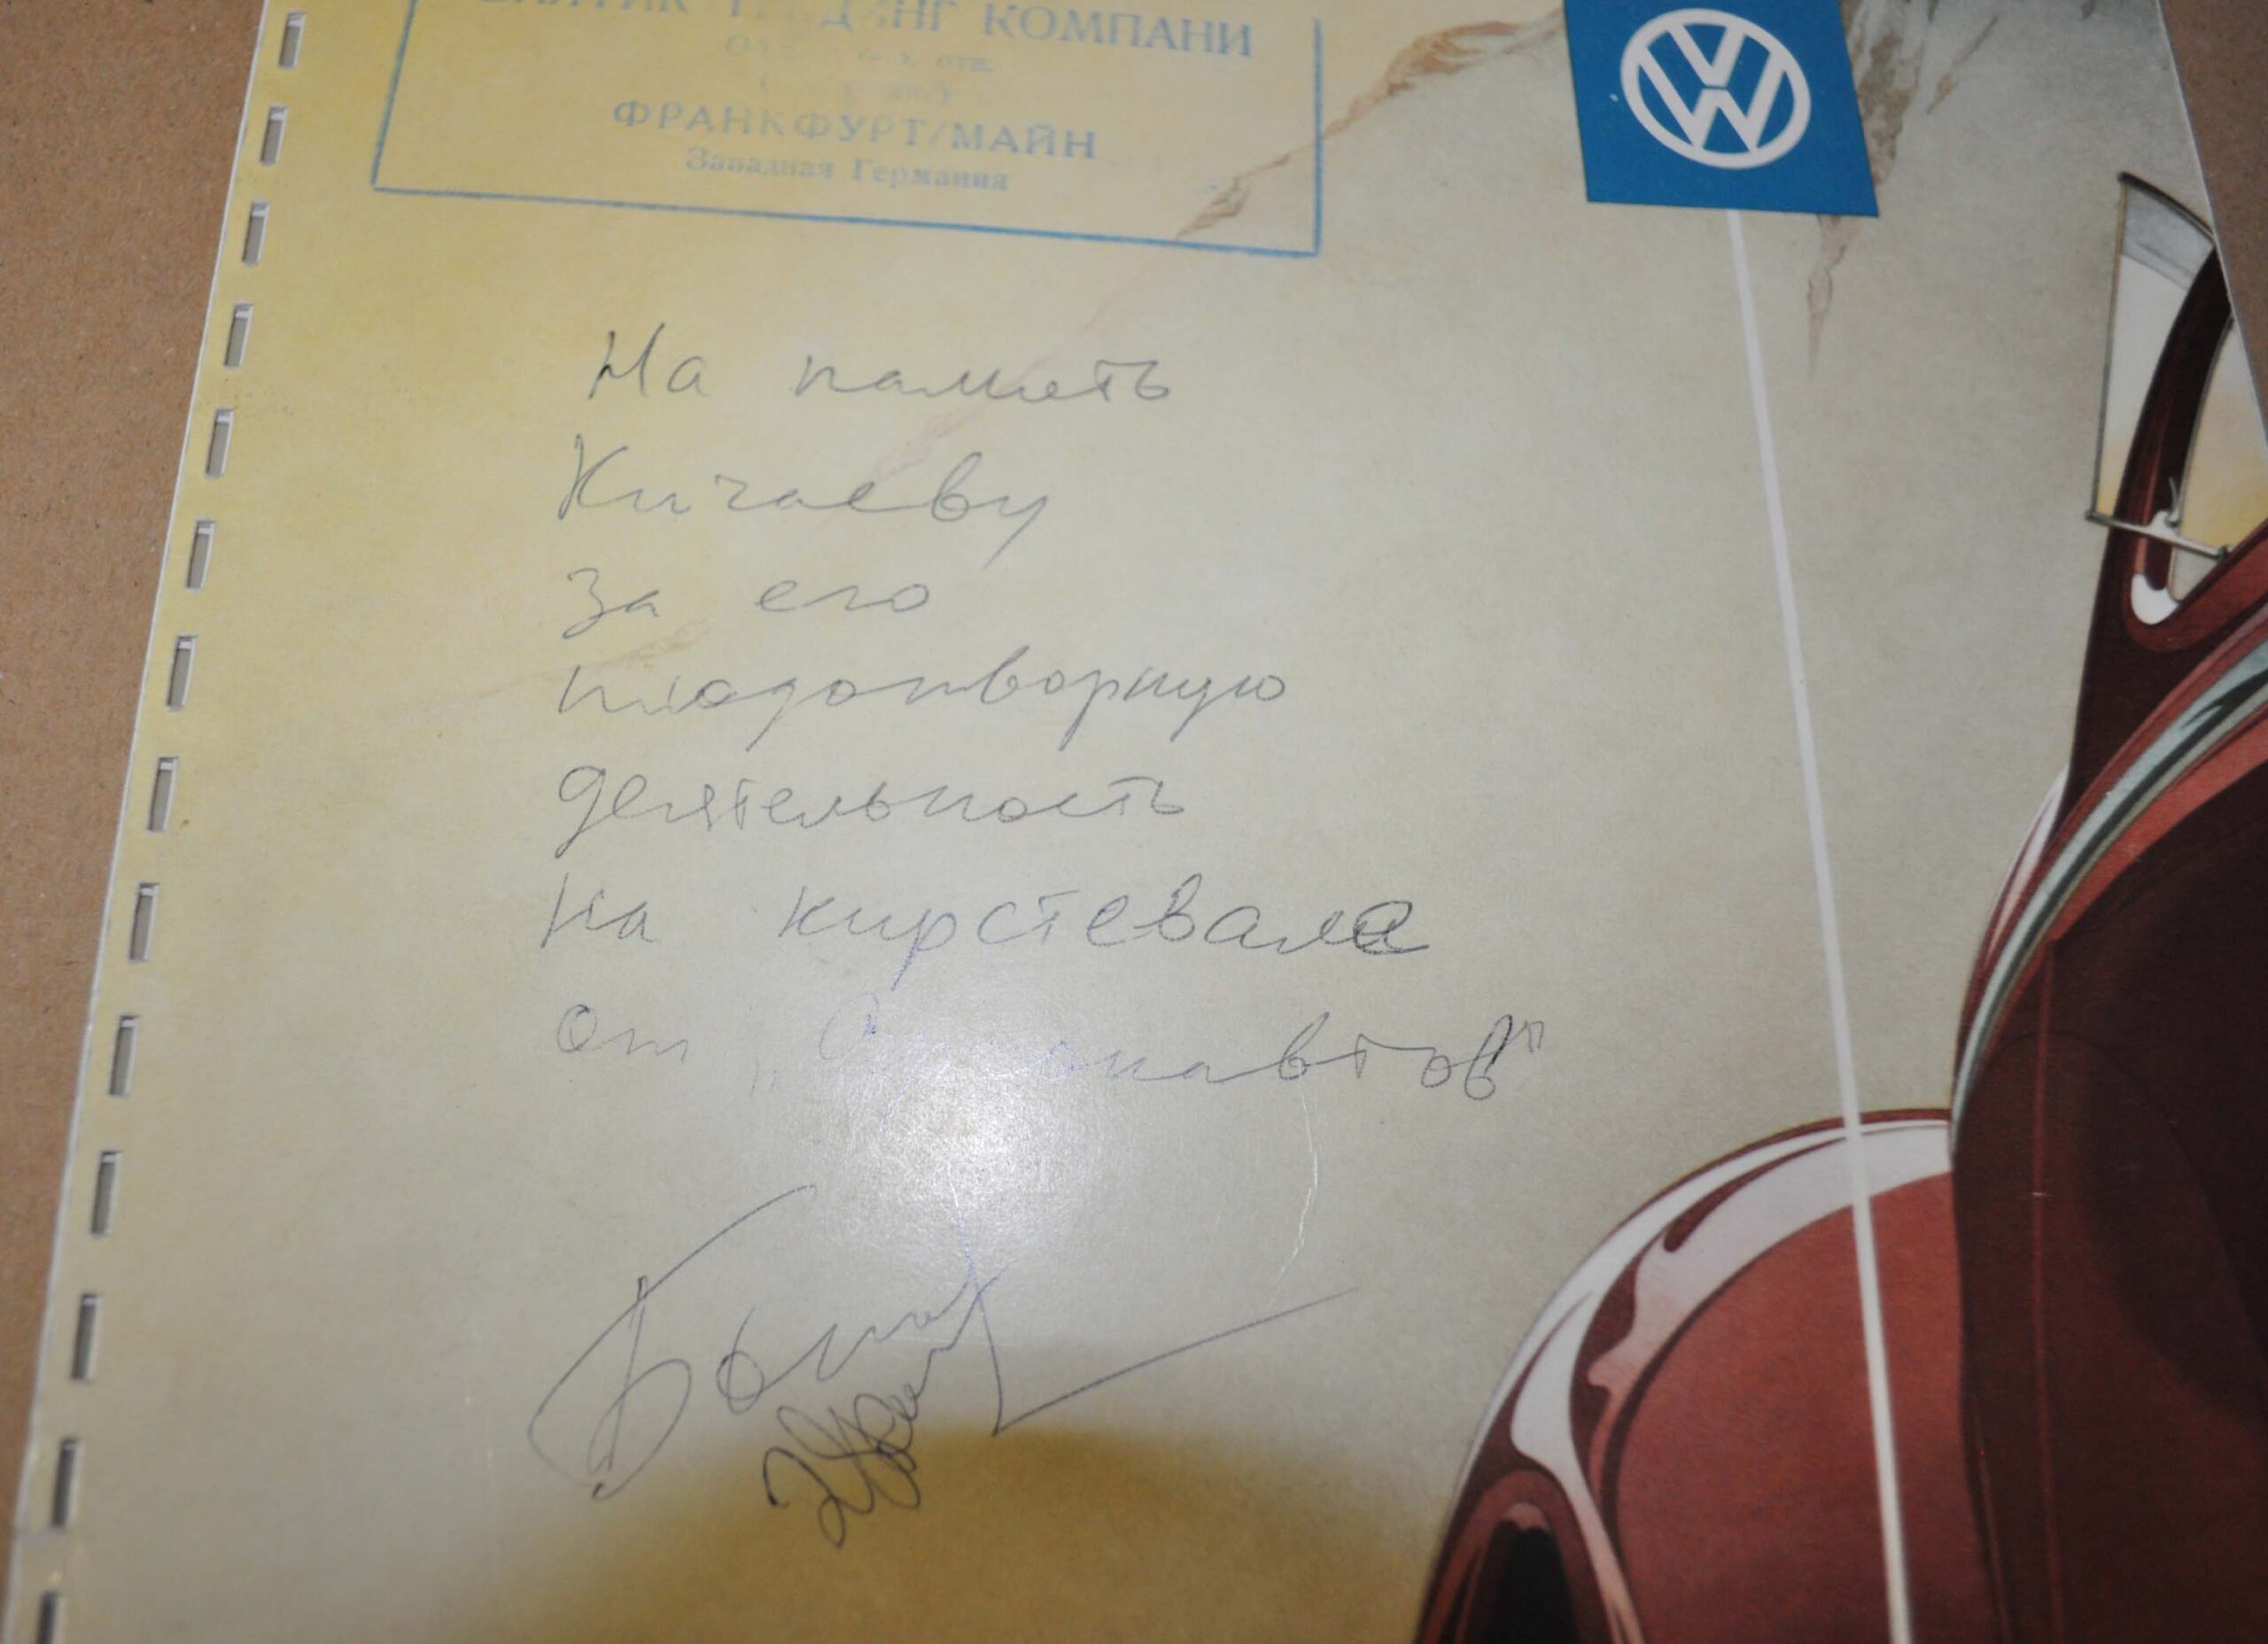 КОМПАНИ
ФРАНКФУРТ/МАЙН
Западная Германия
VW
На память
Кичаеву
за его
плодотворную
деятельность
на кирстевале
от